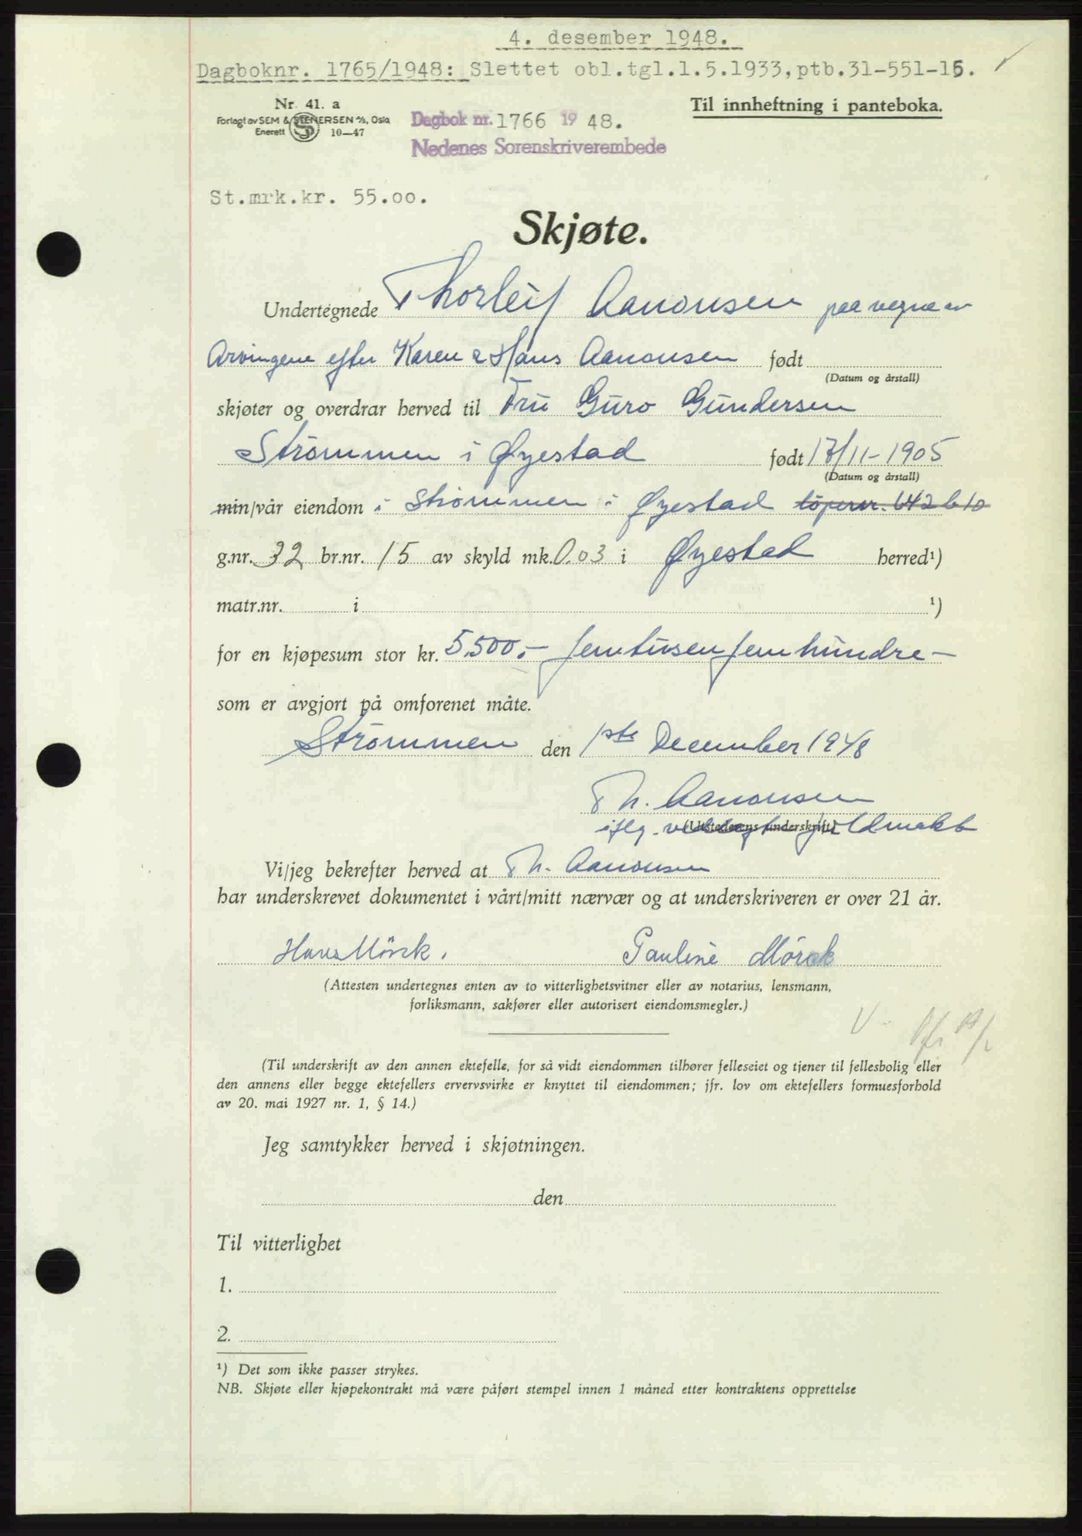 4. desember 1948.
Dagboknr. 1765/1948: Slettet obl.tgl.1.5.1933, ptb.31-551-15.
Nr. 41. a
Til innheftning i panteboka.
Forlagt av SEM & STENERSEN A/S, Oslo
Enerett 10-47
Dagbok nr. 1766 1948.
Nedenes Sorenskriverembede
St.mrk.kr. 55.00.
Skjøte.
Undertegnede Thorleif Aanonsen paa vegne av
Arvingene efter Karen & Hans Aanonsen født
(Datum og årstall)
skjøter og overdrar herved til Fru Guro Gundersen
Strømmen i Øyestad født 17/11-1905
(Datum og årstall)
min/vår eiendom i Strømmen i Øyestad løpenr. 642 b 10
g.nr. 32 br.nr. 15 av skyld mk. 0.03 i Øyestad herred¹)
matr.nr. i ¹)
for en kjøpesum stor kr. 5.500.- femtusenfemhundre-
som er avgjort på omforenet måte.
Strømmen den 1ste December 1948
Th. Aanonsen
iflg. (Utstederens underskrift)
Vi/jeg bekrefter herved at Th. Aanonsen
har underskrevet dokumentet i vårt/mitt nærvær og at underskriveren er over 21 år.
Hans Mörck. Pauline Mörck
(Attesten undertegnes enten av to vitterlighetsvitner eller av notarius, lensmann,
forliksmann, sakfører eller autorisert eiendomsmegler.)
(Til underskrift av den annen ektefelle, for så vidt eiendommen tilhører felleseiet og tjener til fellesbolig eller
den annens eller begge ektefellers ervervsvirke er knyttet til eiendommen; jfr. lov om ektefellers formuesforhold
av 20. mai 1927 nr. 1, § 14.)
Jeg samtykker herved i skjøtningen.
den
Til vitterlighet
1.
2.
¹) Det som ikke passer strykes.
NB. Skjøte eller kjøpekontrakt må være påført stempel innen 1 måned etter kontraktens opprettelse